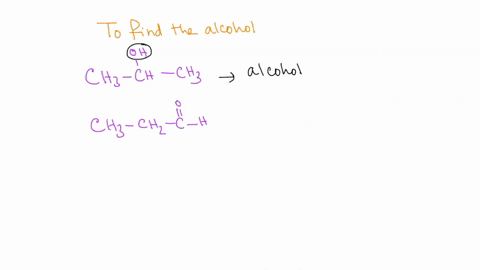 To find the alcohol
OH
CH3-CH-CH3 → alcohol
O
CH3-CH2-C-H